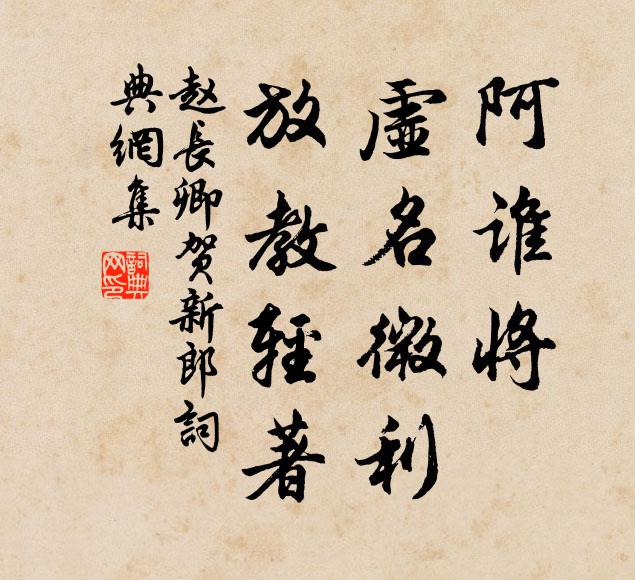 阿谁将
虚名微利
放教轻著
赵长卿贺新郎词
典网集
词典网印